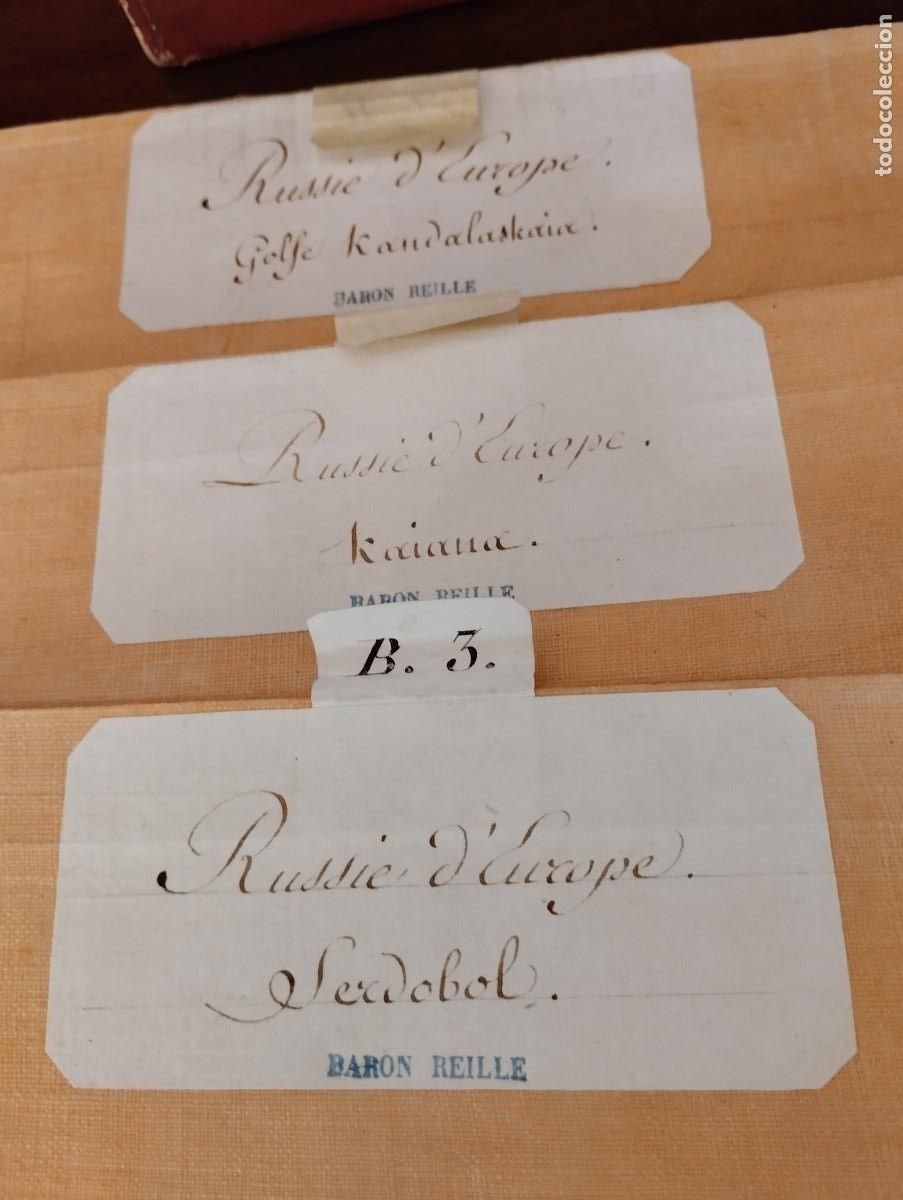 Russie d'Europe.
Golfe Kandalaskaia.
BARON REILLE
Russie d'Europe.
Kaiana.
BARON REILLE
B. 3.
Russie d'Europe.
Serdobol.
BARON REILLE
todocoleccion